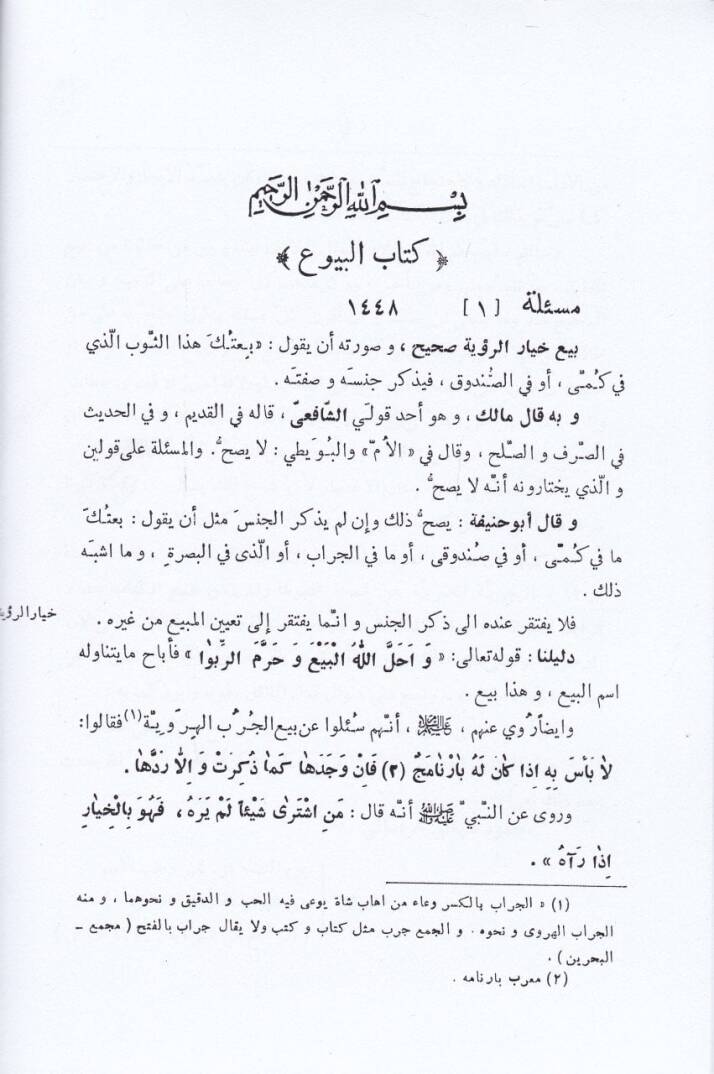 بِسْمِ اللهِ الرَّحْمٰنِ الرَّحِيمِ
﴿ كتاب البيوع ﴾
مسئلة [١] ١٤٤٨
بيع خيار الرؤية صحيح ، و صورته أن يقول : « بعتُكَ هذا الثوب الّذي
في كُمّي ، أو في الصُندوق ، فيذكر جنسَه و صفتَه .
و به قال مالك ، و هو أحد قولَي الشّافعىّ ، قاله في القديم ، و في الحديث
في الصّرف و الصّلح ، وقال في « الأمّ » والبُوَيطي : لا يصحّ . والمسئلة على قولين
و الّذي يختارونه أنّه لا يصحّ .
و قال أبوحنيفة : يصحُّ ذلك وإن لم يذكر الجنسَ مثل أن يقول : بعتُكَ
ما في كُمّى ، أو في صُندوقى ، أو ما في الجراب ، أو الّذى في البصرةِ ، و ما اشبَه
ذلك .
فلا يفتقر عنده الى ذكر الجنس و انّما يفتقر إلى تعيين المبيع من غيره .
خيار الرؤية
دليلنا : قوله تعالى : « وَ اَحَلَّ اللّٰهُ الْبَيْعَ وَ حَرَّمَ الرِّبٰوا » فأباح مايتناوله
اسم البيع ، و هذا بيع .
وايضاً رُوي عنهم ، عليهم السلام ، أنّهم سُئلوا عن بيع الجُرُب الهِرَوِيّة(١) فقالوا :
لٰا بَأسَ بِهِ اِذا كٰانَ لَهُ بٰارْنٰامَجٌ (٢) فَاِنْ وَجَدَهٰا كَمٰا ذُكِرَتْ وَ اِلّٰا رَدَّهٰا .
وروى عن النّبيّ صلى الله عليه وآله أنّه قال : مَنِ اشْتَرىٰ شَيْئاً لَمْ يَرَهُ ، فَهُوَ بِالْخِيٰارِ
اِذٰا رَآهُ » .
(١) « الجراب بالكسر وعاء من اهاب شاة يوعى فيه الحب و الدقيق و نحوهما ، و منه
الجراب الهروى و نحوه . و الجمع جرب مثل كتاب و كتب ولا يقال جراب بالفتح ( مجمع ـ
البحرين ) .
(٢) معرب بارنامه .